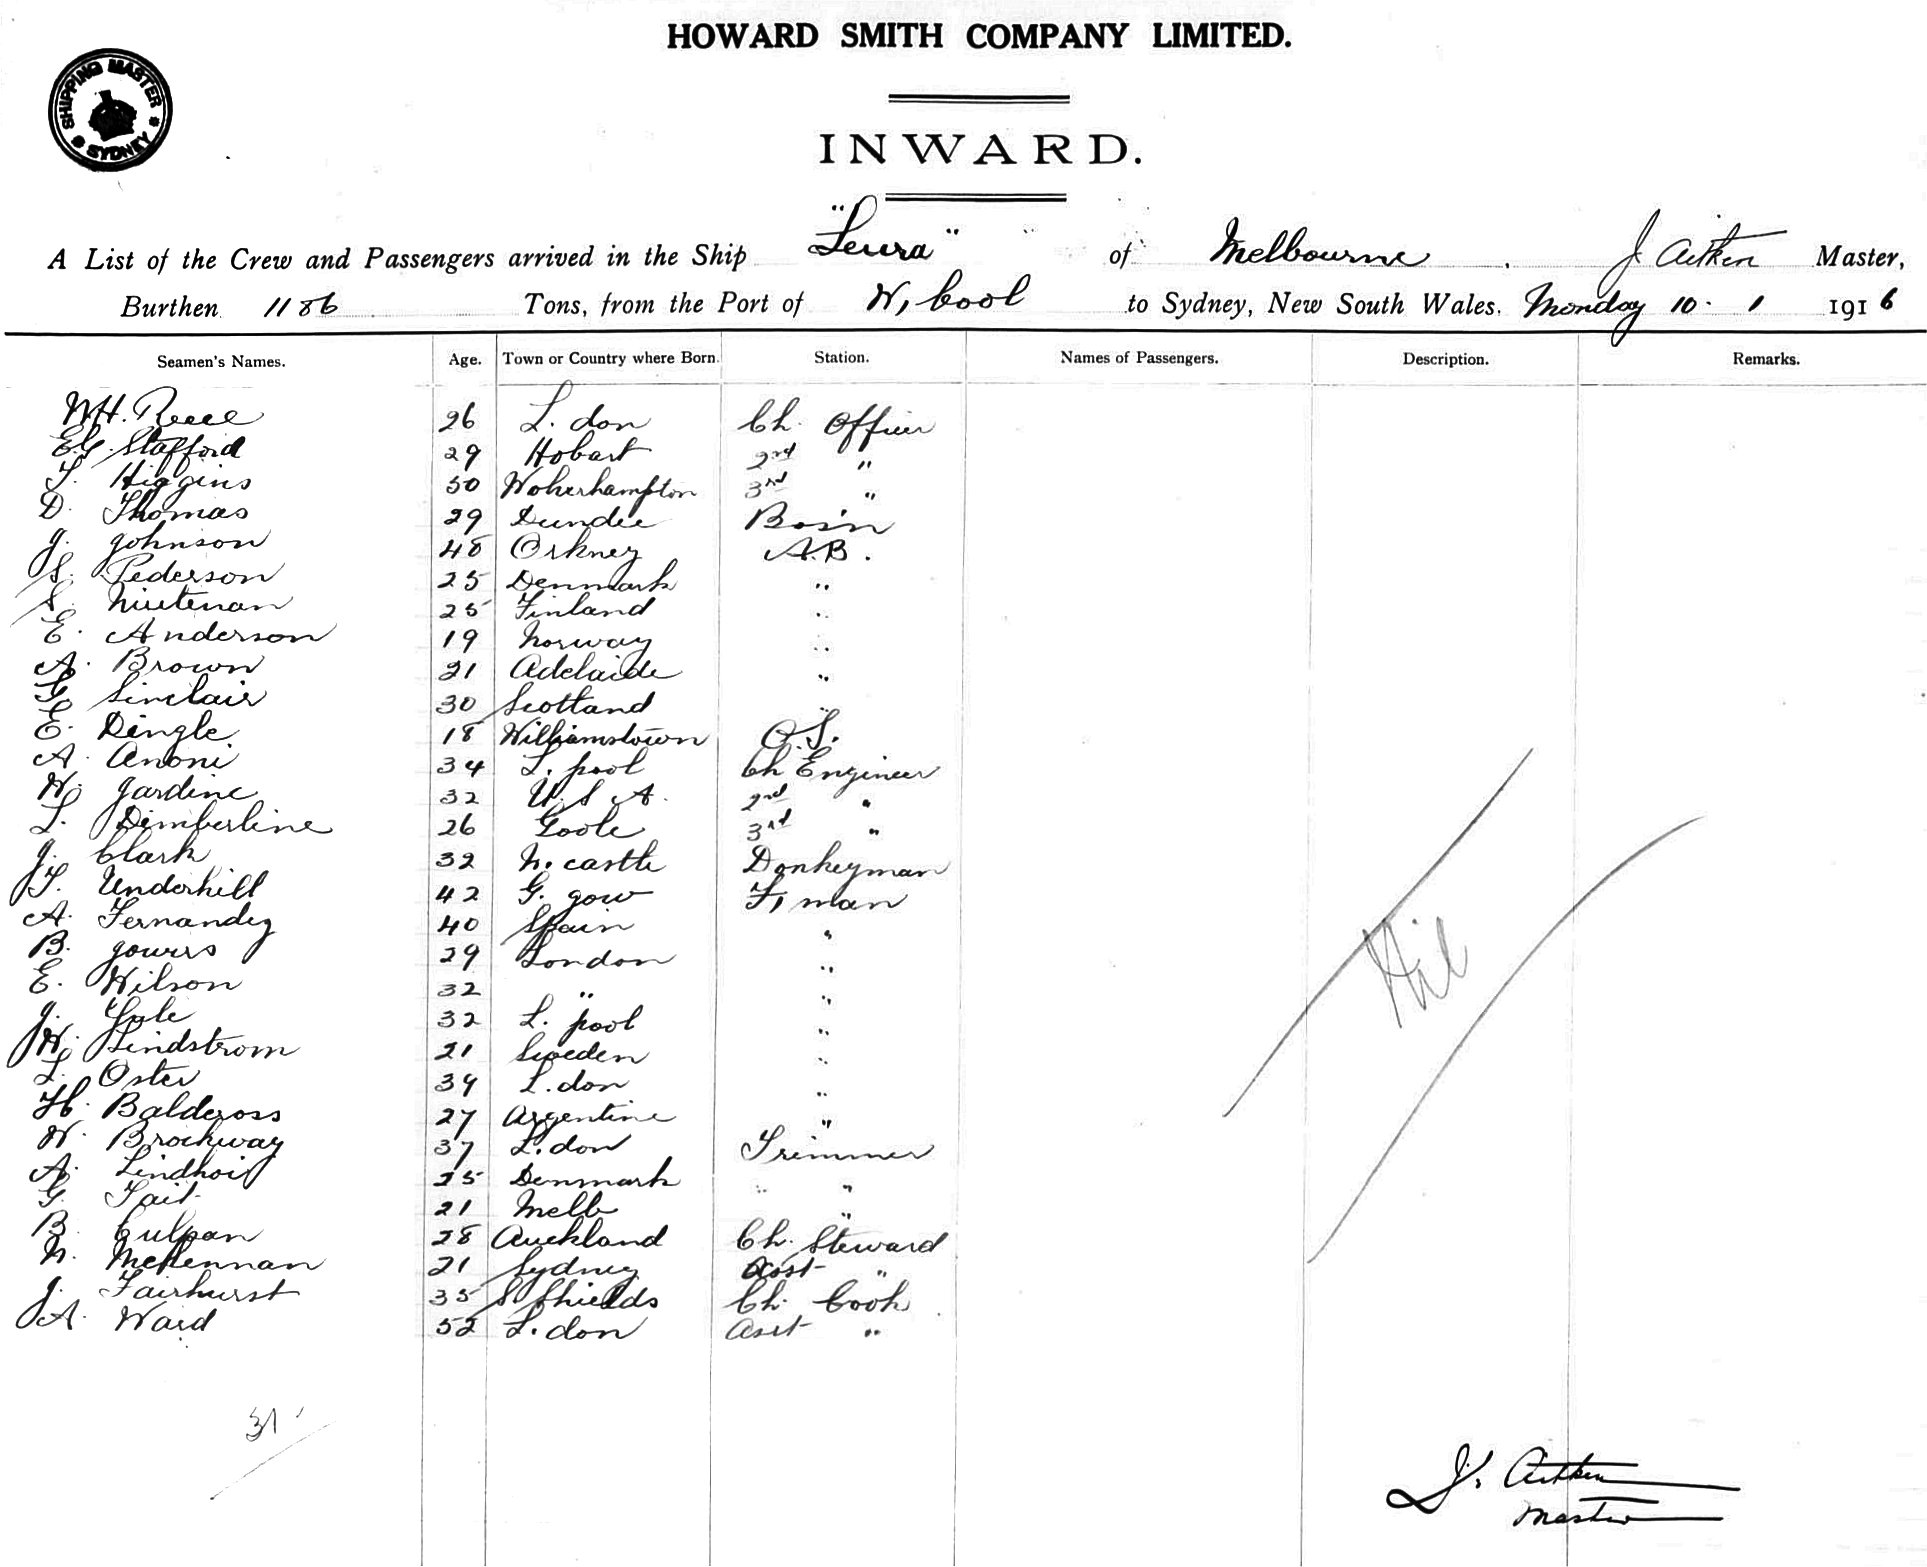 HOWARD SMITH COMPANY LIMITED.
SHIPPING MASTER SYDNEY
INWARD.
A List of the Crew and Passengers arrived in the Ship "Leura" of Melbourne. J Aitken Master,
Burthen 1186 Tons, from the Port of N, Cool to Sydney, New South Wales. Monday 10 1 1916
Seamen's Names. Age. Town or Country where Born. Station. Names of Passengers. Description. Remarks.
W.H. Reece 26 L. don Ch. Officer
E.G. Stafford 29 Hobart 2nd "
T. Higgins 50 Wolverhampton 3rd "
D. Thomas 29 Dundee Bos'n
J. Johnson 48 Orkney A.B.
S. Pederson 25 Denmark "
S. 25 Finland "
E. Anderson 19 Norway "
A. Brown 21 Adelaide "
G. Sinclair 30 Scotland "
E. Dingle 18 Williamstown O.S.
A. Anoni 34 L. pool Ch Engineer
W. Jardine 32 U.S.A. 2nd "
L. Dimberline 26 Goole 3rd "
J. Clark 32 N. castle Donkeyman
T. Underhill 42 G. gow F, man
A. Fernandez 40 Spain "
B. 29 London "
E. Wilson 32 " "
J. 32 L. pool "
W. Lindstrom 21 Sweden "
L. Oster 39 L. don "
H. Baldcross 27 Argentine "
W. Brockway 37 L. don Trimmer
A. 25 Denmark " "
G. Tait 21 Melb "
B. Culpan 28 Auckland Ch. Steward
N. McKennan 21 Sydney Asst "
J. Fairhurst 35 S Shields Ch. Cook
A. Ward 52 L. don Asst "
Nil
31
J. Aitken
Master